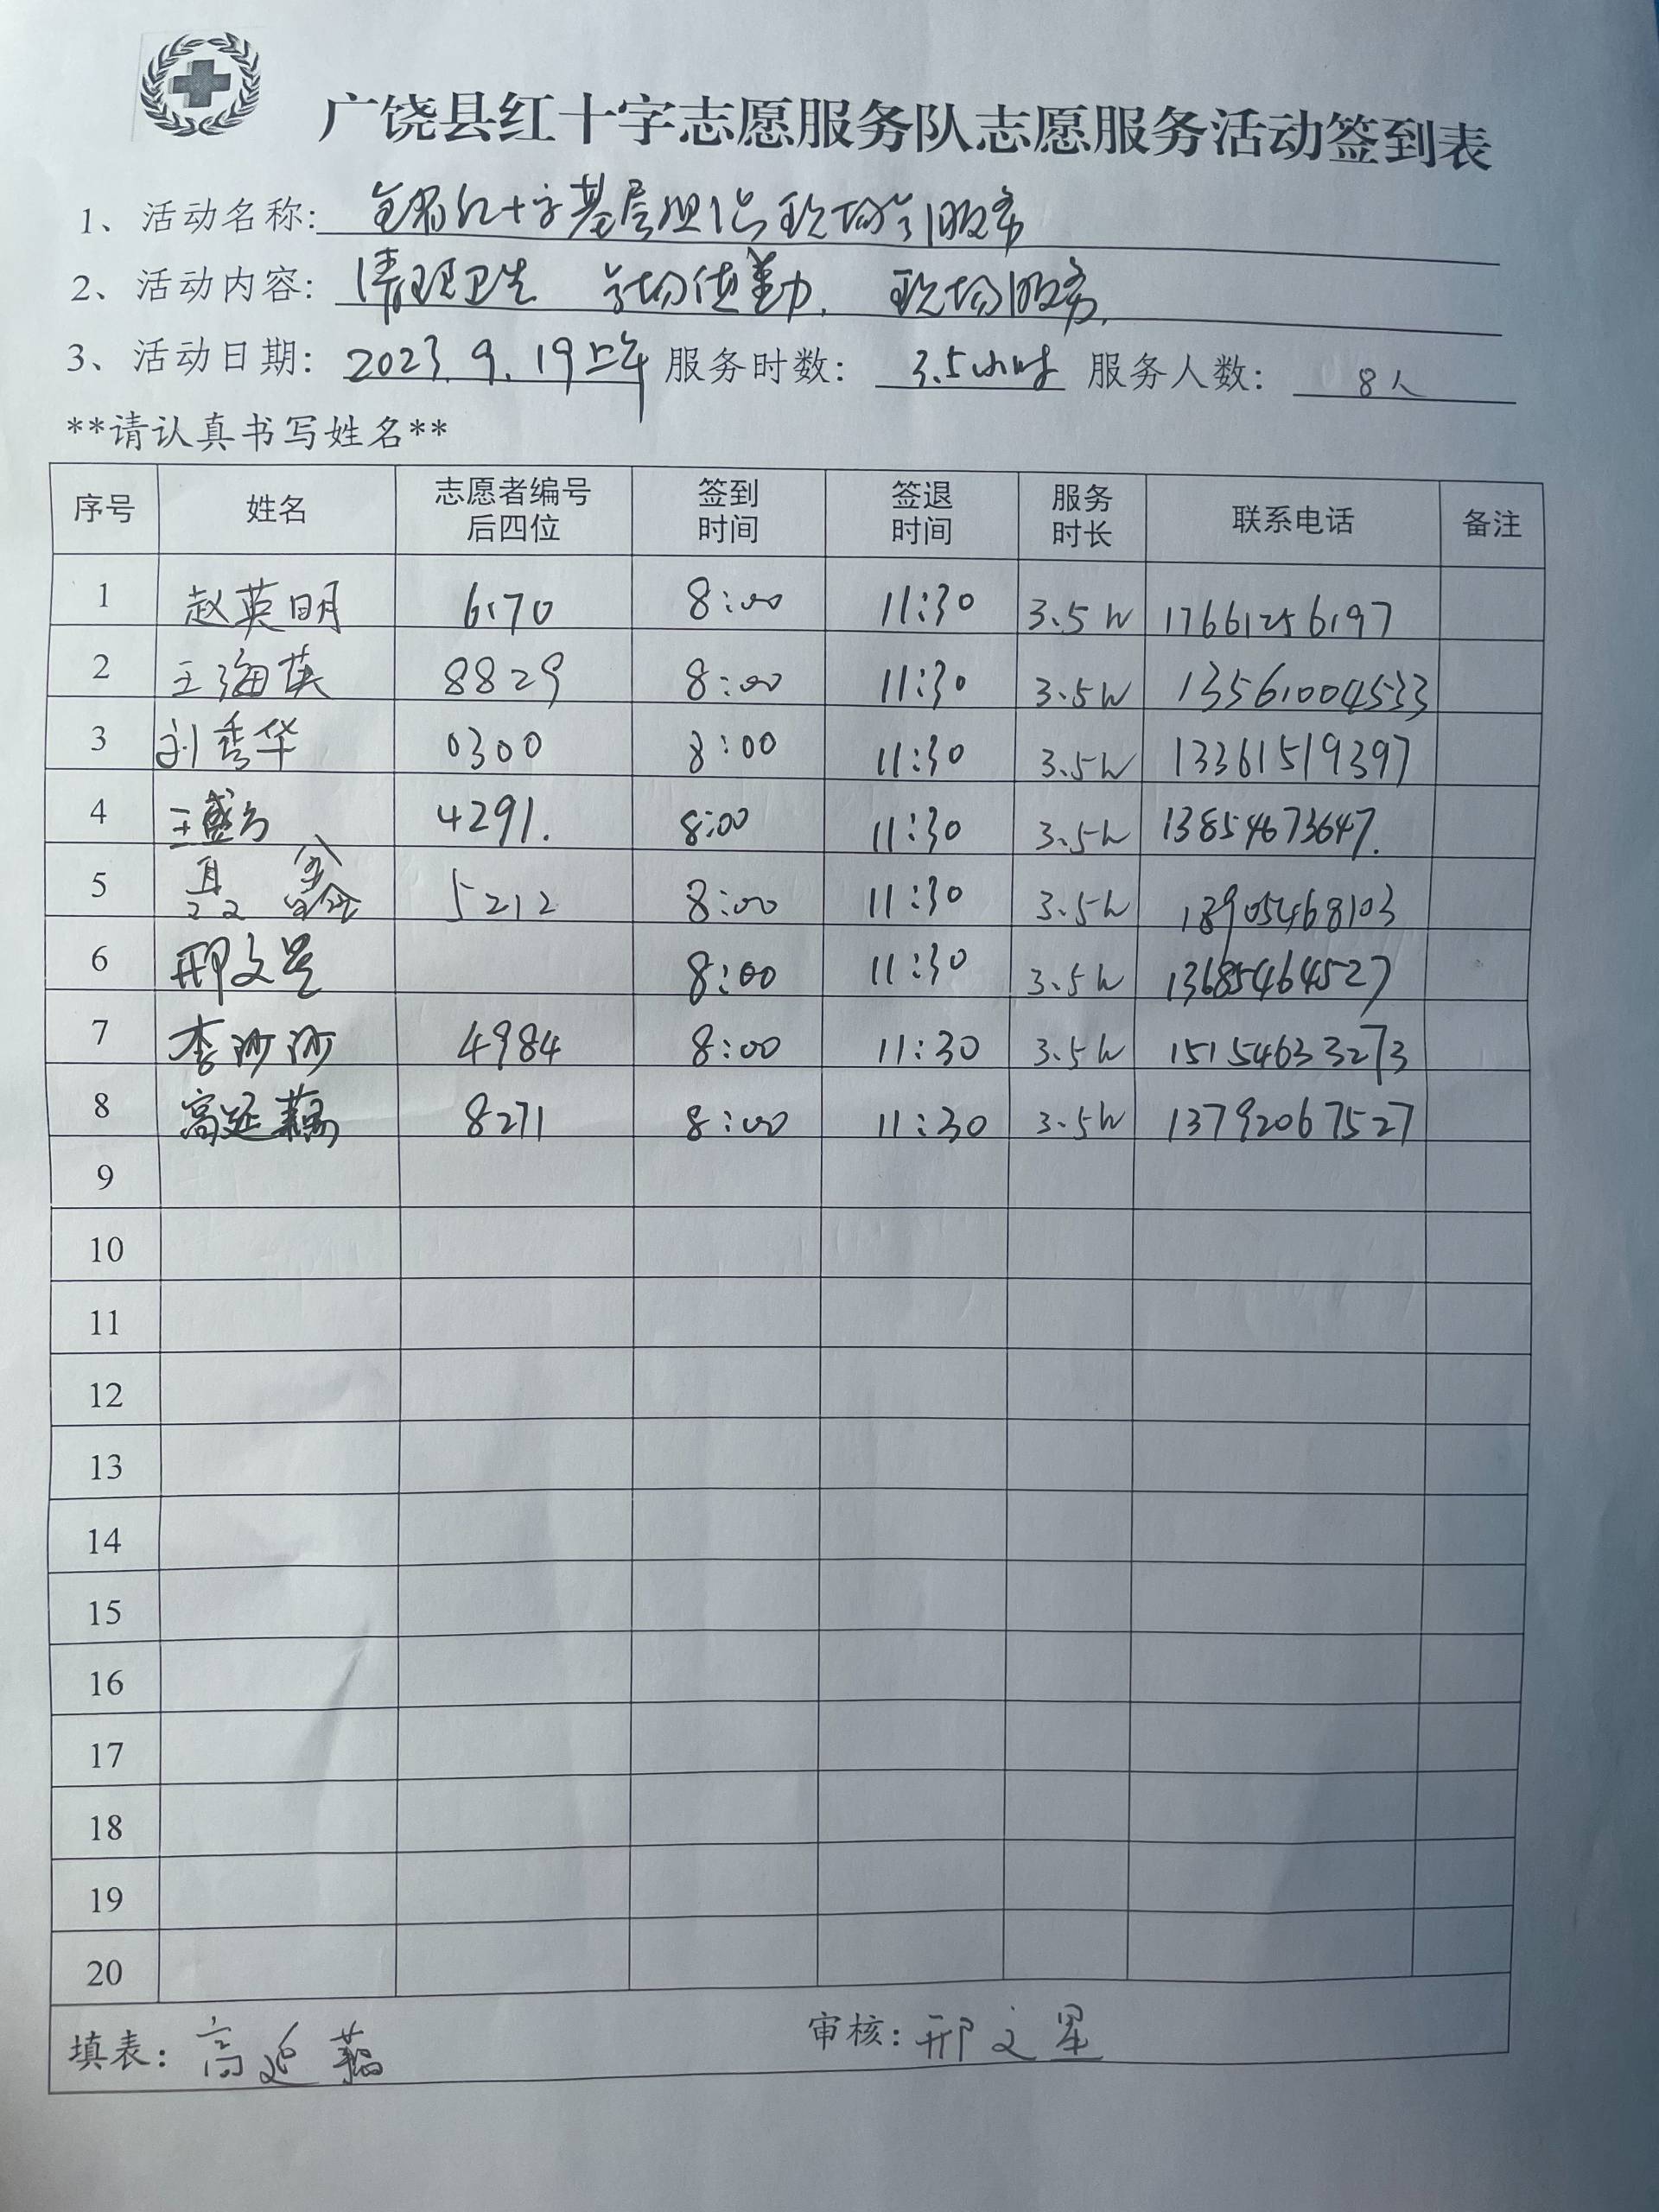 广饶县红十字志愿服务队志愿服务活动签到表
1、活动名称: 全省红十字基层组织现场会服务
2、活动内容: 清理卫生 会场值勤. 现场服务.
3、活动日期: 2023.9.19上午 服务时数: 3.5小时 服务人数: 8人
**请认真书写姓名**
序号 姓名 志愿者编号后四位 签到时间 签退时间 服务时长 联系电话 备注
1 赵英明 6170 8:00 11:30 3.5h 17661256197
2 王海英 8829 8:00 11:30 3.5h 13561004533
3 刘秀华 0300 8:00 11:30 3.5h 13361519397
4 王盛 4291. 8:00 11:30 3.5h 13854673647.
5 聂 5212 8:00 11:30 3.5h 18905468103
6 邢文星 8:00 11:30 3.5h 13685464527
7 李沙沙 4984 8:00 11:30 3.5h 15154633273
8 高延藕 8271 8:00 11:30 3.5h 13792067527
9
10
11
12
13
14
15
16
17
18
19
20
填表: 高延藕 审核: 邢文星